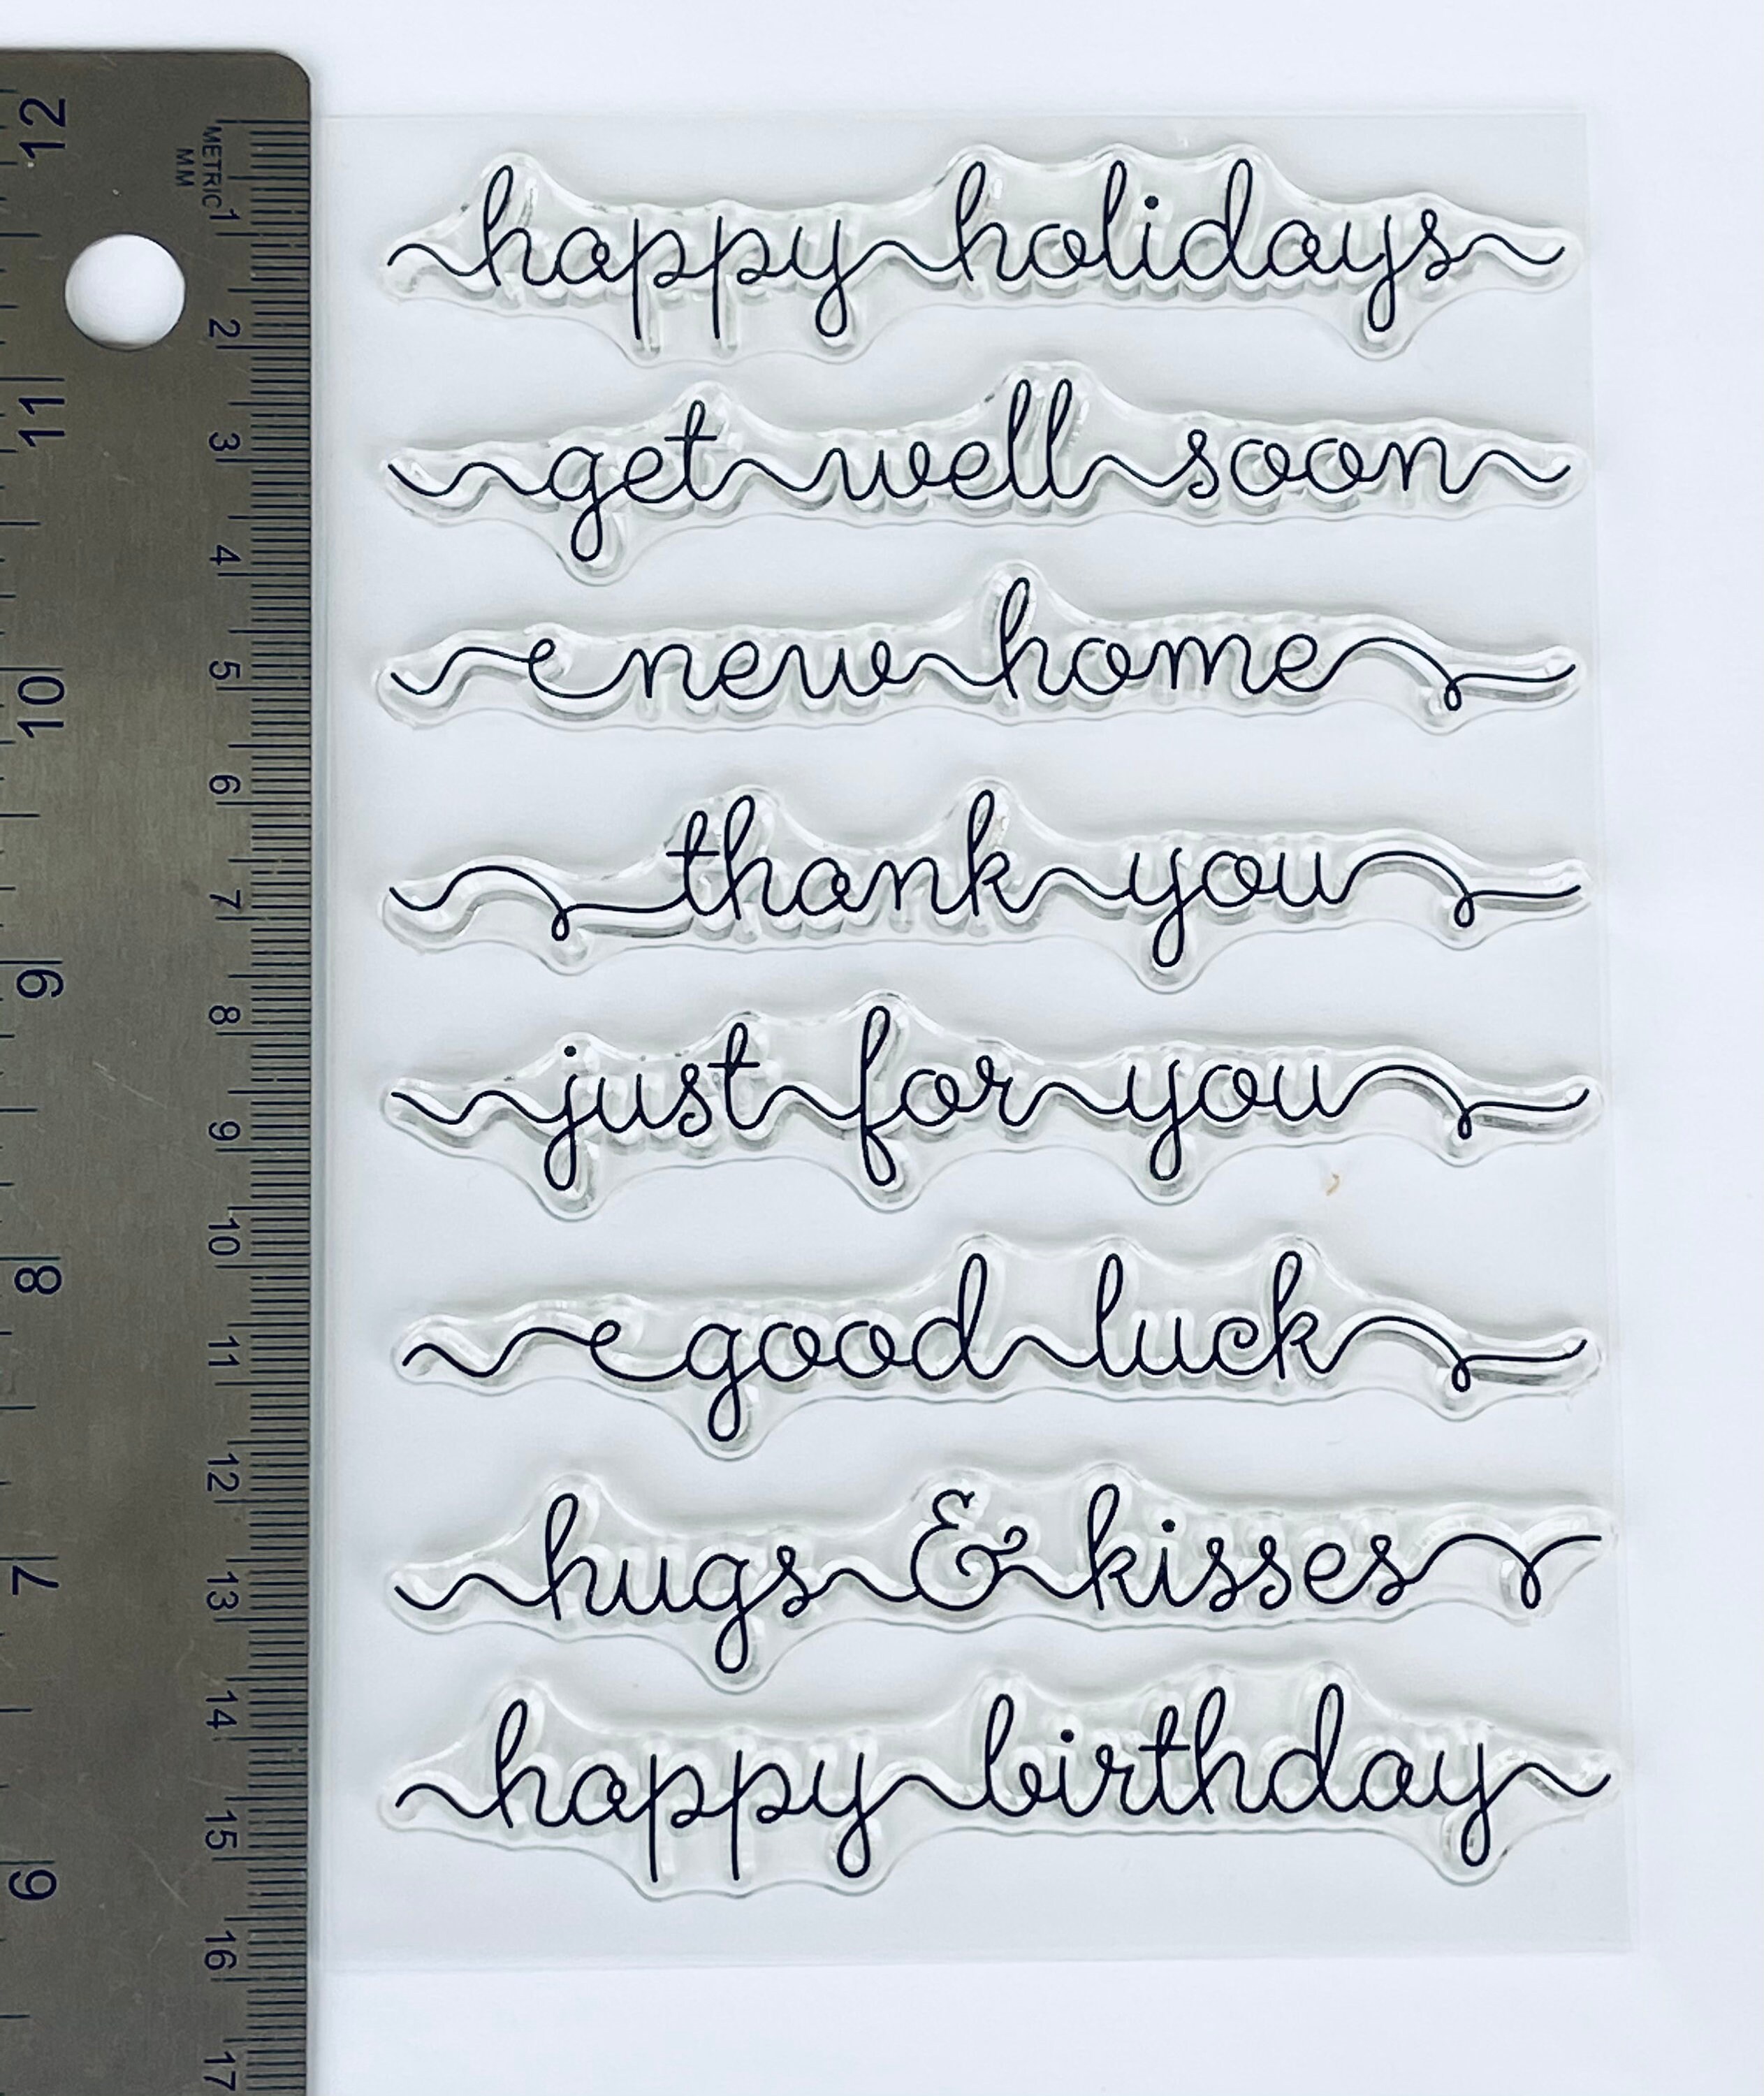 happy holidays
get well soon
new home
thank you
just for you
good luck
hugs & kisses
happy birthday
12
11
10
9
8
7
6
METRIC
MM
1
2
3
4
5
6
7
8
9
10
11
12
13
14
15
16
17